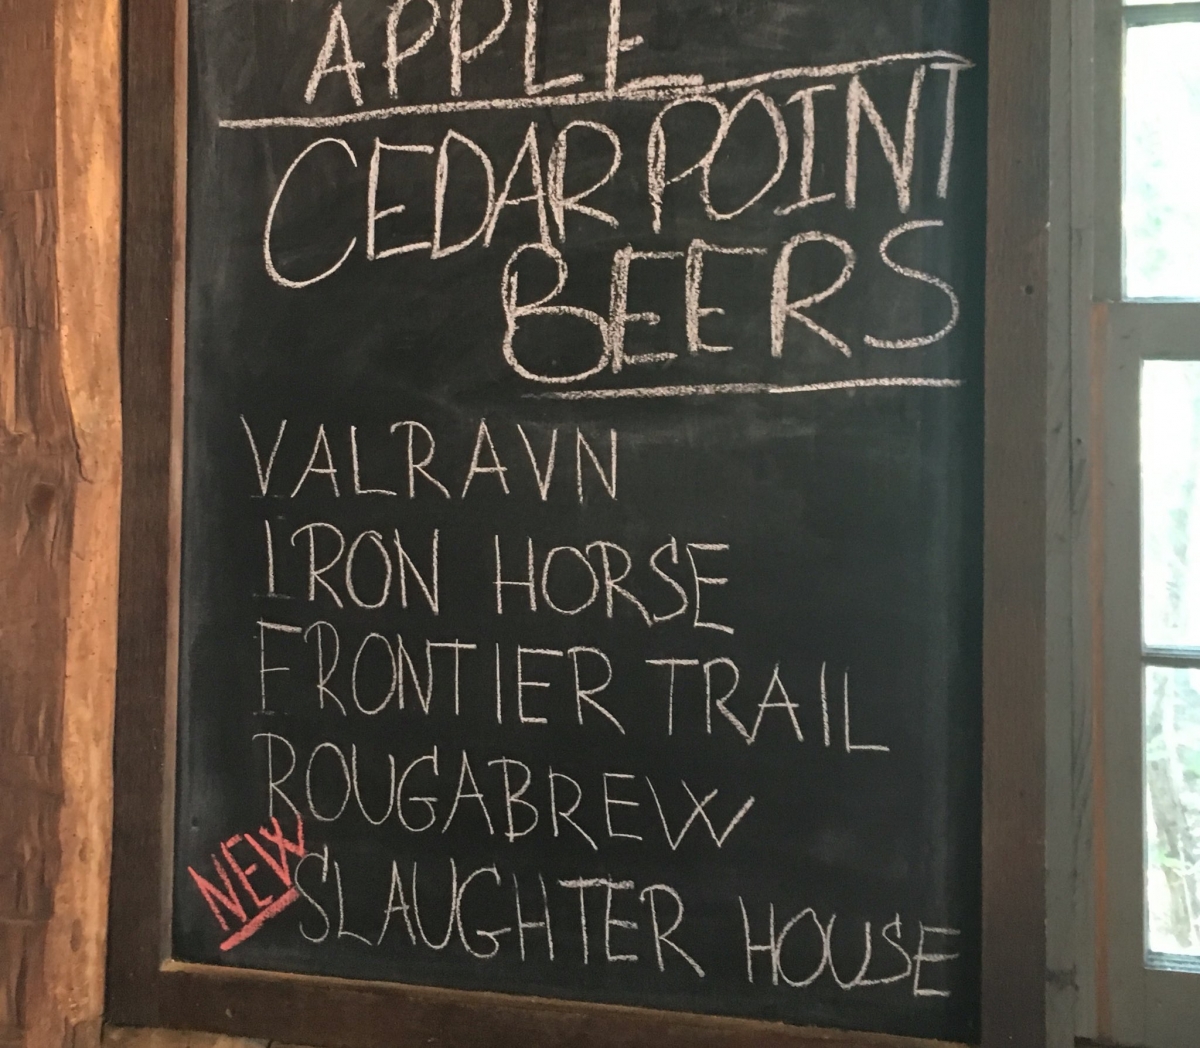 APPLE
CEDAR POINT
BEERS
VALRAVN
IRON HORSE
FRONTIER TRAIL
ROUGABREW
NEW
SLAUGHTER HOUSE